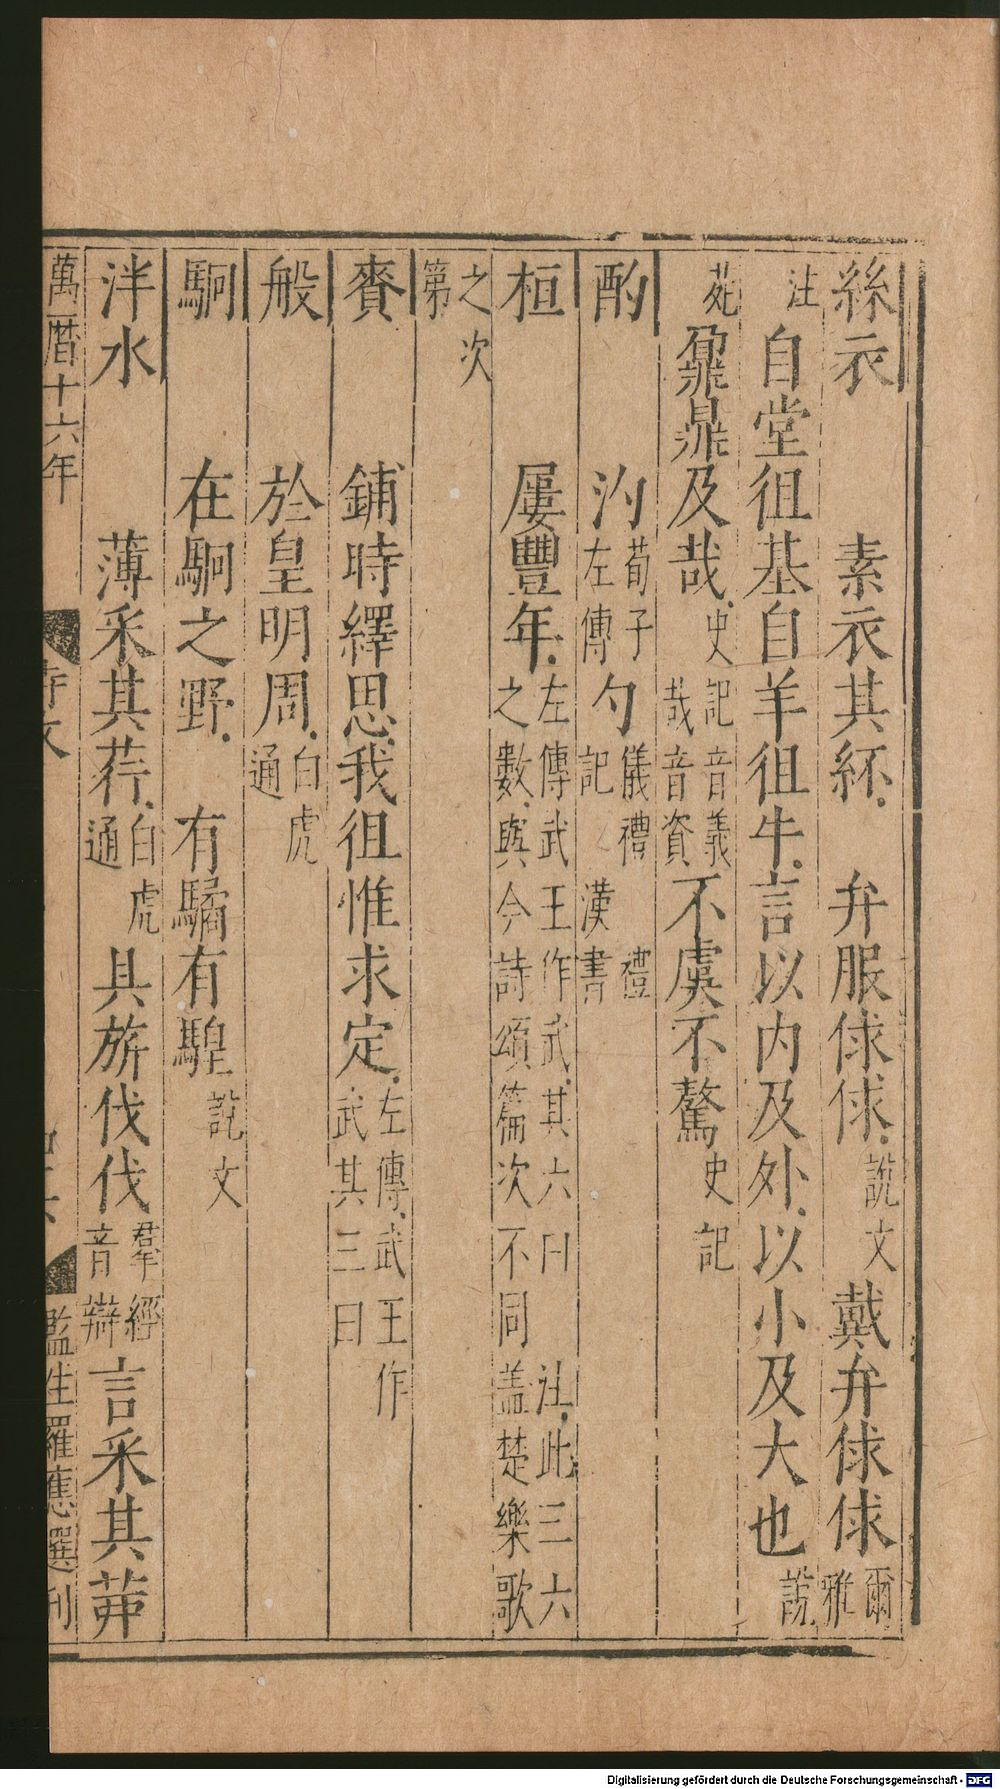 絲衣　素衣其紑　弁服俅俅說文戴弁俅俅爾雅
注自堂徂基自羊徂牛言以内及外以小及大也說
苑鼐鼎及哉史記音義哉音資不虞不驁史記
酌　汋荀子左傳勺儀禮禮記漢書
桓　屢豐年左傳武王作武其六曰　注此三六之數與今詩頌篇次不同盖楚樂歌
之次第
賚　鋪時繹思我徂惟求定左傳武王作武其三曰
般　於皇明周白虎通
駉　在駉之野　有驈有騜說文
泮水　薄采其荇白虎通具旂伐伐羣經音辯言采其茆
萬曆十六年
監生羅應選刊
Digitalisierung gefördert durch die Deutsche Forschungsgemeinschaft - DFG